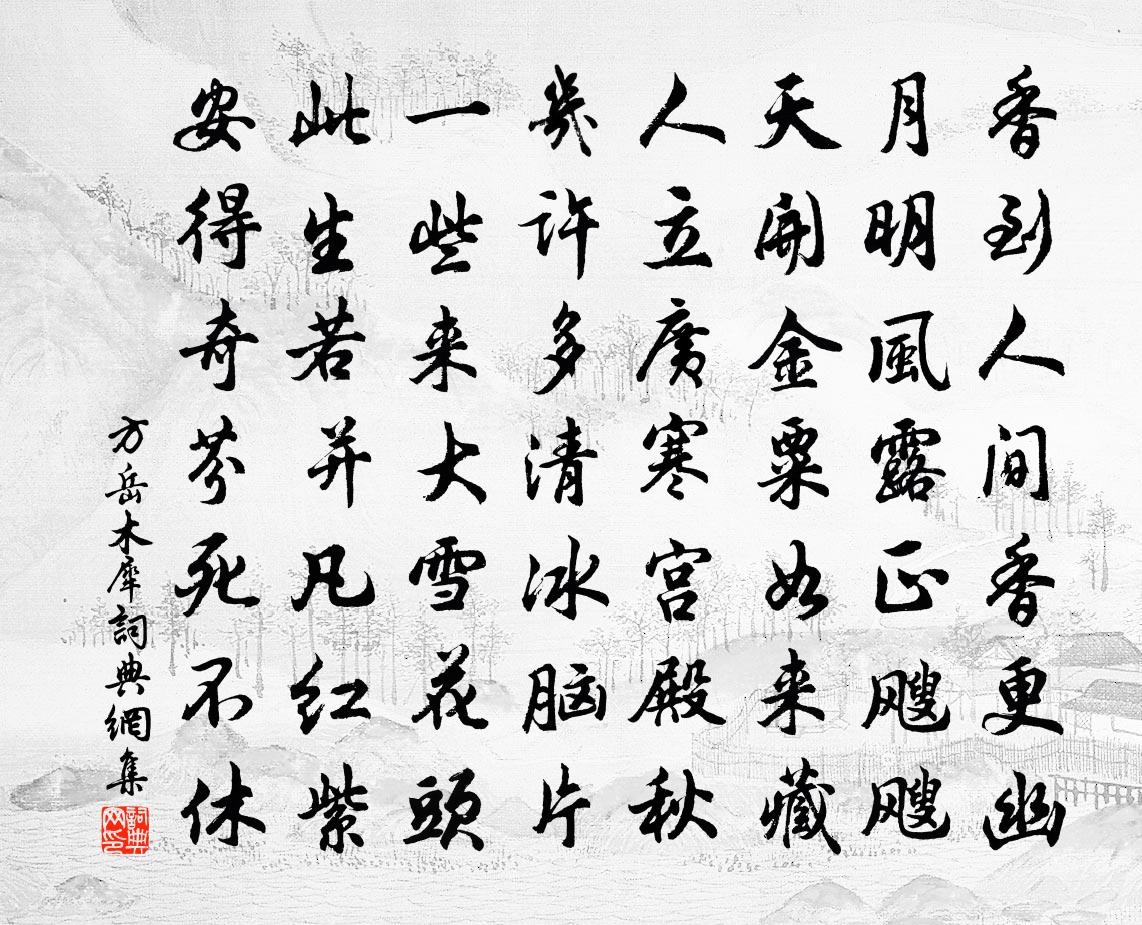 香到人间香更幽
月明風露正飕飕
天開金粟如来藏
人立廣寒宫殿秋
幾许多清冰脑片
一些来大雪花頭
此生若并凡红紫
安得奇芬死不休
方岳木犀詞典網集
詞典网印